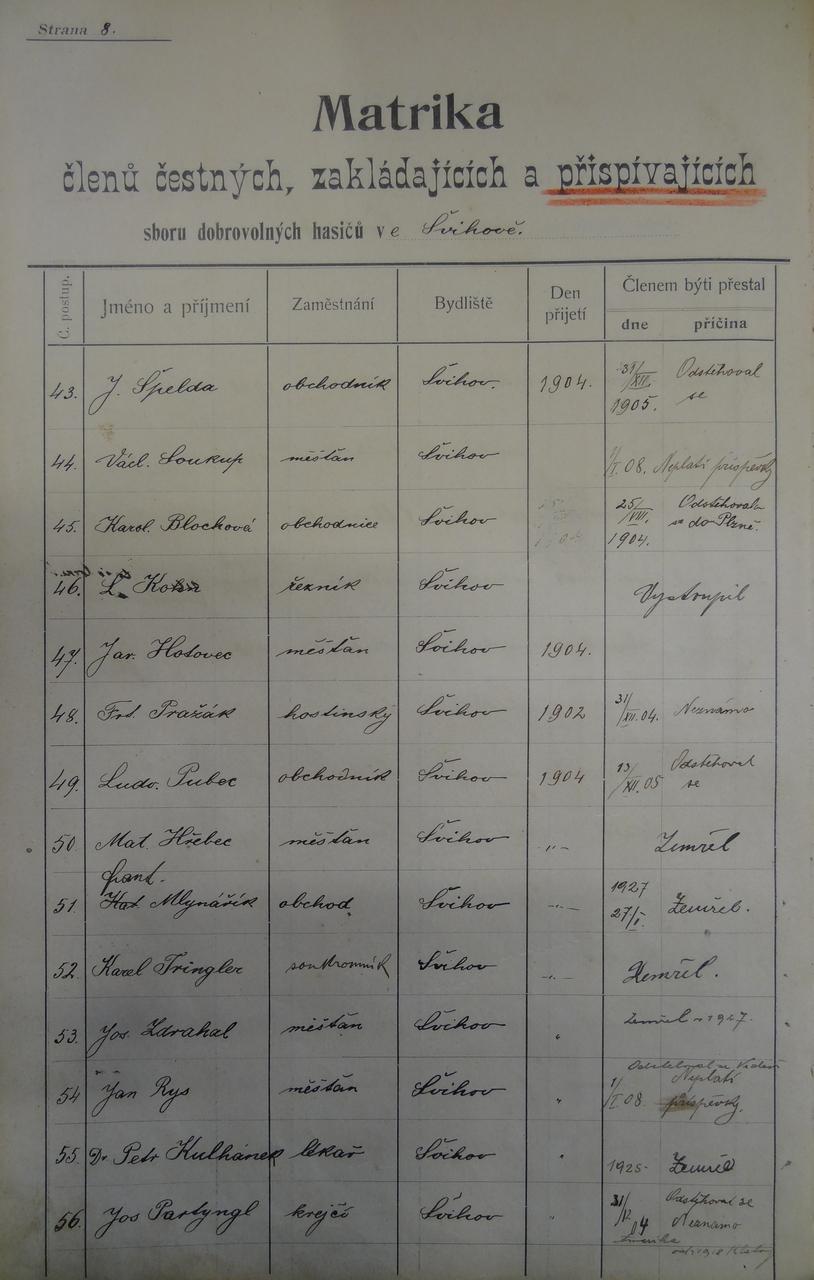 Strana 8.
Matrika
členů čestných, zakládajících a přispívajících
sboru dobrovolných hasičů ve Švihově.
Č. postup. Jméno a příjmení Zaměstnání Bydliště Den přijetí Členem býti přestal
dne příčina
43. J. Špelda obchodník Švihov. 1904. 31/XII. 1905. Odstěhoval se
44. Václ. Soukup měšťan Švihov 1/I. 08. Neplatí příspěvky
45. Karol. Blochová obchodnice Švihov 25/VIII. 1904. Odstěhovala se do Plzně.
46. L. Kohn řezník Švihov Vystoupil
47. Jar. Hotovec měšťan Švihov 1904.
48. Frt. Pražák hostinský Švihov 1902 31/XII. 04. Neznámo
49. Ludv. Pubec obchodník Švihov 1904 13/XII. 05 Odstěhoval se
50. Mat. Hřebec měšťan Švihov -"- Zemřel
51. Frant. Mlynářík obchod. Švihov -"- 1927 27/I. Zemřel.
52. Karel Tringler soukromník Švihov -"- Zemřel.
53. Jos. Zdrahal měšťan Švihov " Zemřel 1927.
54 Jan Rys měšťan Švihov " 1/I 08 Neplatí příspěvky.
55. Dr Petr Kulhánek lékař Švihov " 1925 Zemřel
56. Jos Partyngl krejčí Švihov " 31/12 04 Odstěhoval se Neznámo
Amerika